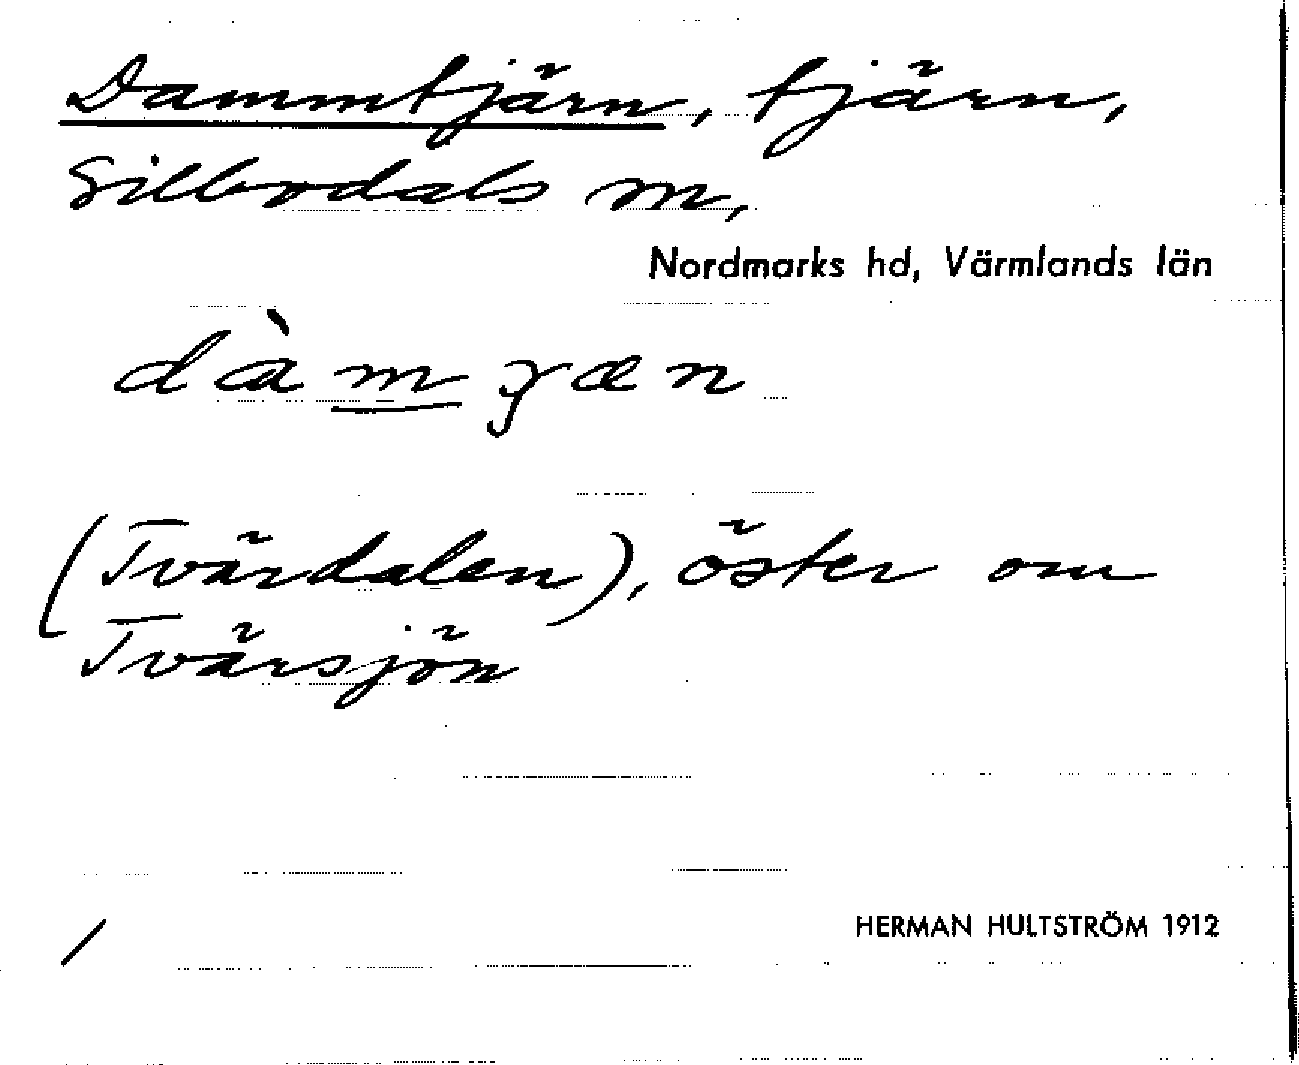 Dammtjärn, tjärn,
Sillbodals m,
Nordmarks hd, Värmlands län
(Tvärdalen), öster om
Tvärsjön
HERMAN HULTSTRÖM 1912